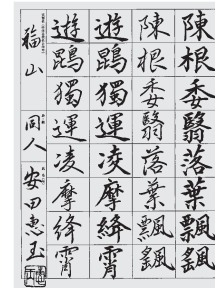 陳根委翳落葉飄颻
陳根委翳落葉飄颻
遊鵾獨運凌摩絳霄
遊鵾獨運凌摩絳霄
福山 同人 安田恵玉